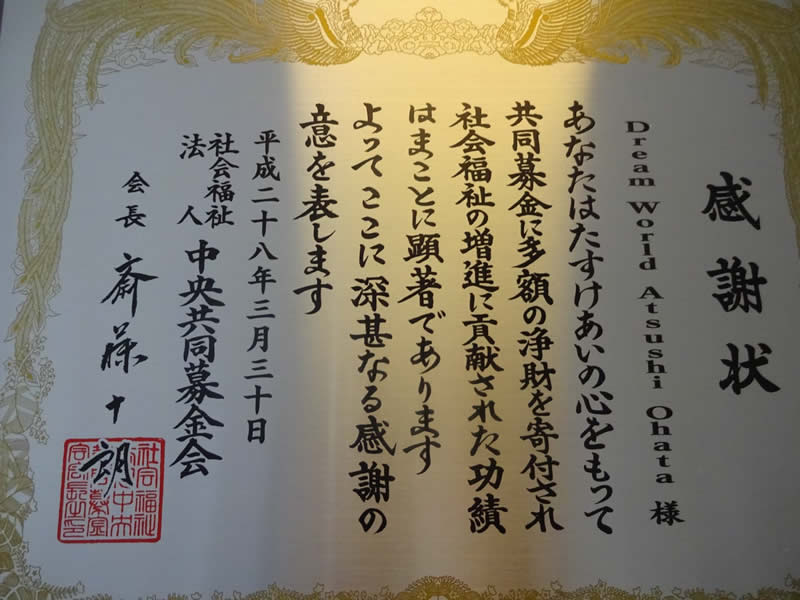 感謝状
Dream World Atsushi Ohata 様
あなたはたすけあいの心をもって
共同募金に多額の浄財を寄付され
社会福祉の増進に貢献された功績
はまことに顕著であります
よってここに深甚なる感謝の
意を表します
平成二十八年三月三十日
社会福祉法人 中央共同募金会
会長 斎藤十朗